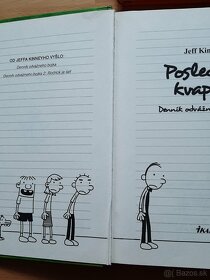 ČO JEFFA KINNEYHO VYŠLO
Denník odvážneho bojka
Denník odvážneho bojka 2: Rodrick je šéf
Jeff Kin
Posled
kvap
Denník odvážn
IKAR